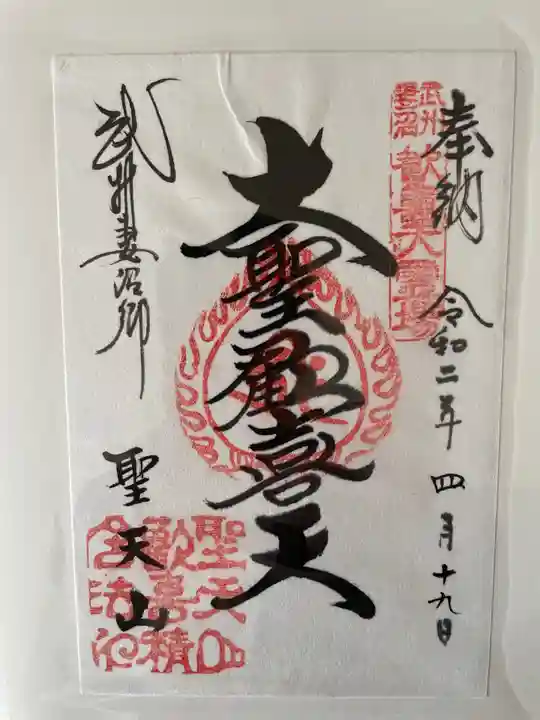 奉納
令和二年四月十九日
武州
妻沼
歓喜天霊場
大聖歓喜天
武州妻沼郷
聖天山
聖天山
歓喜精
舎法印